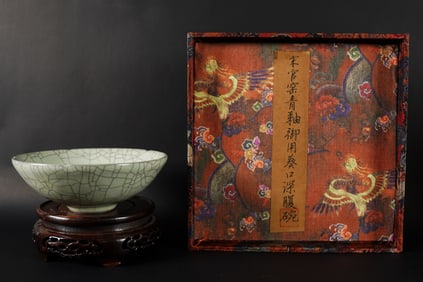 宋官窯青釉御用葵口深腹碗